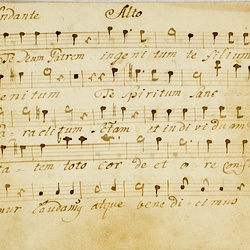 ndante Alto
Te Deum Patrem ingenitum te filium
enitum Te Spiritum Sanc
raclitum ctam et individuam
ta tem toto Cor de et o re Conf
mur laudamus atque bene di ci mus